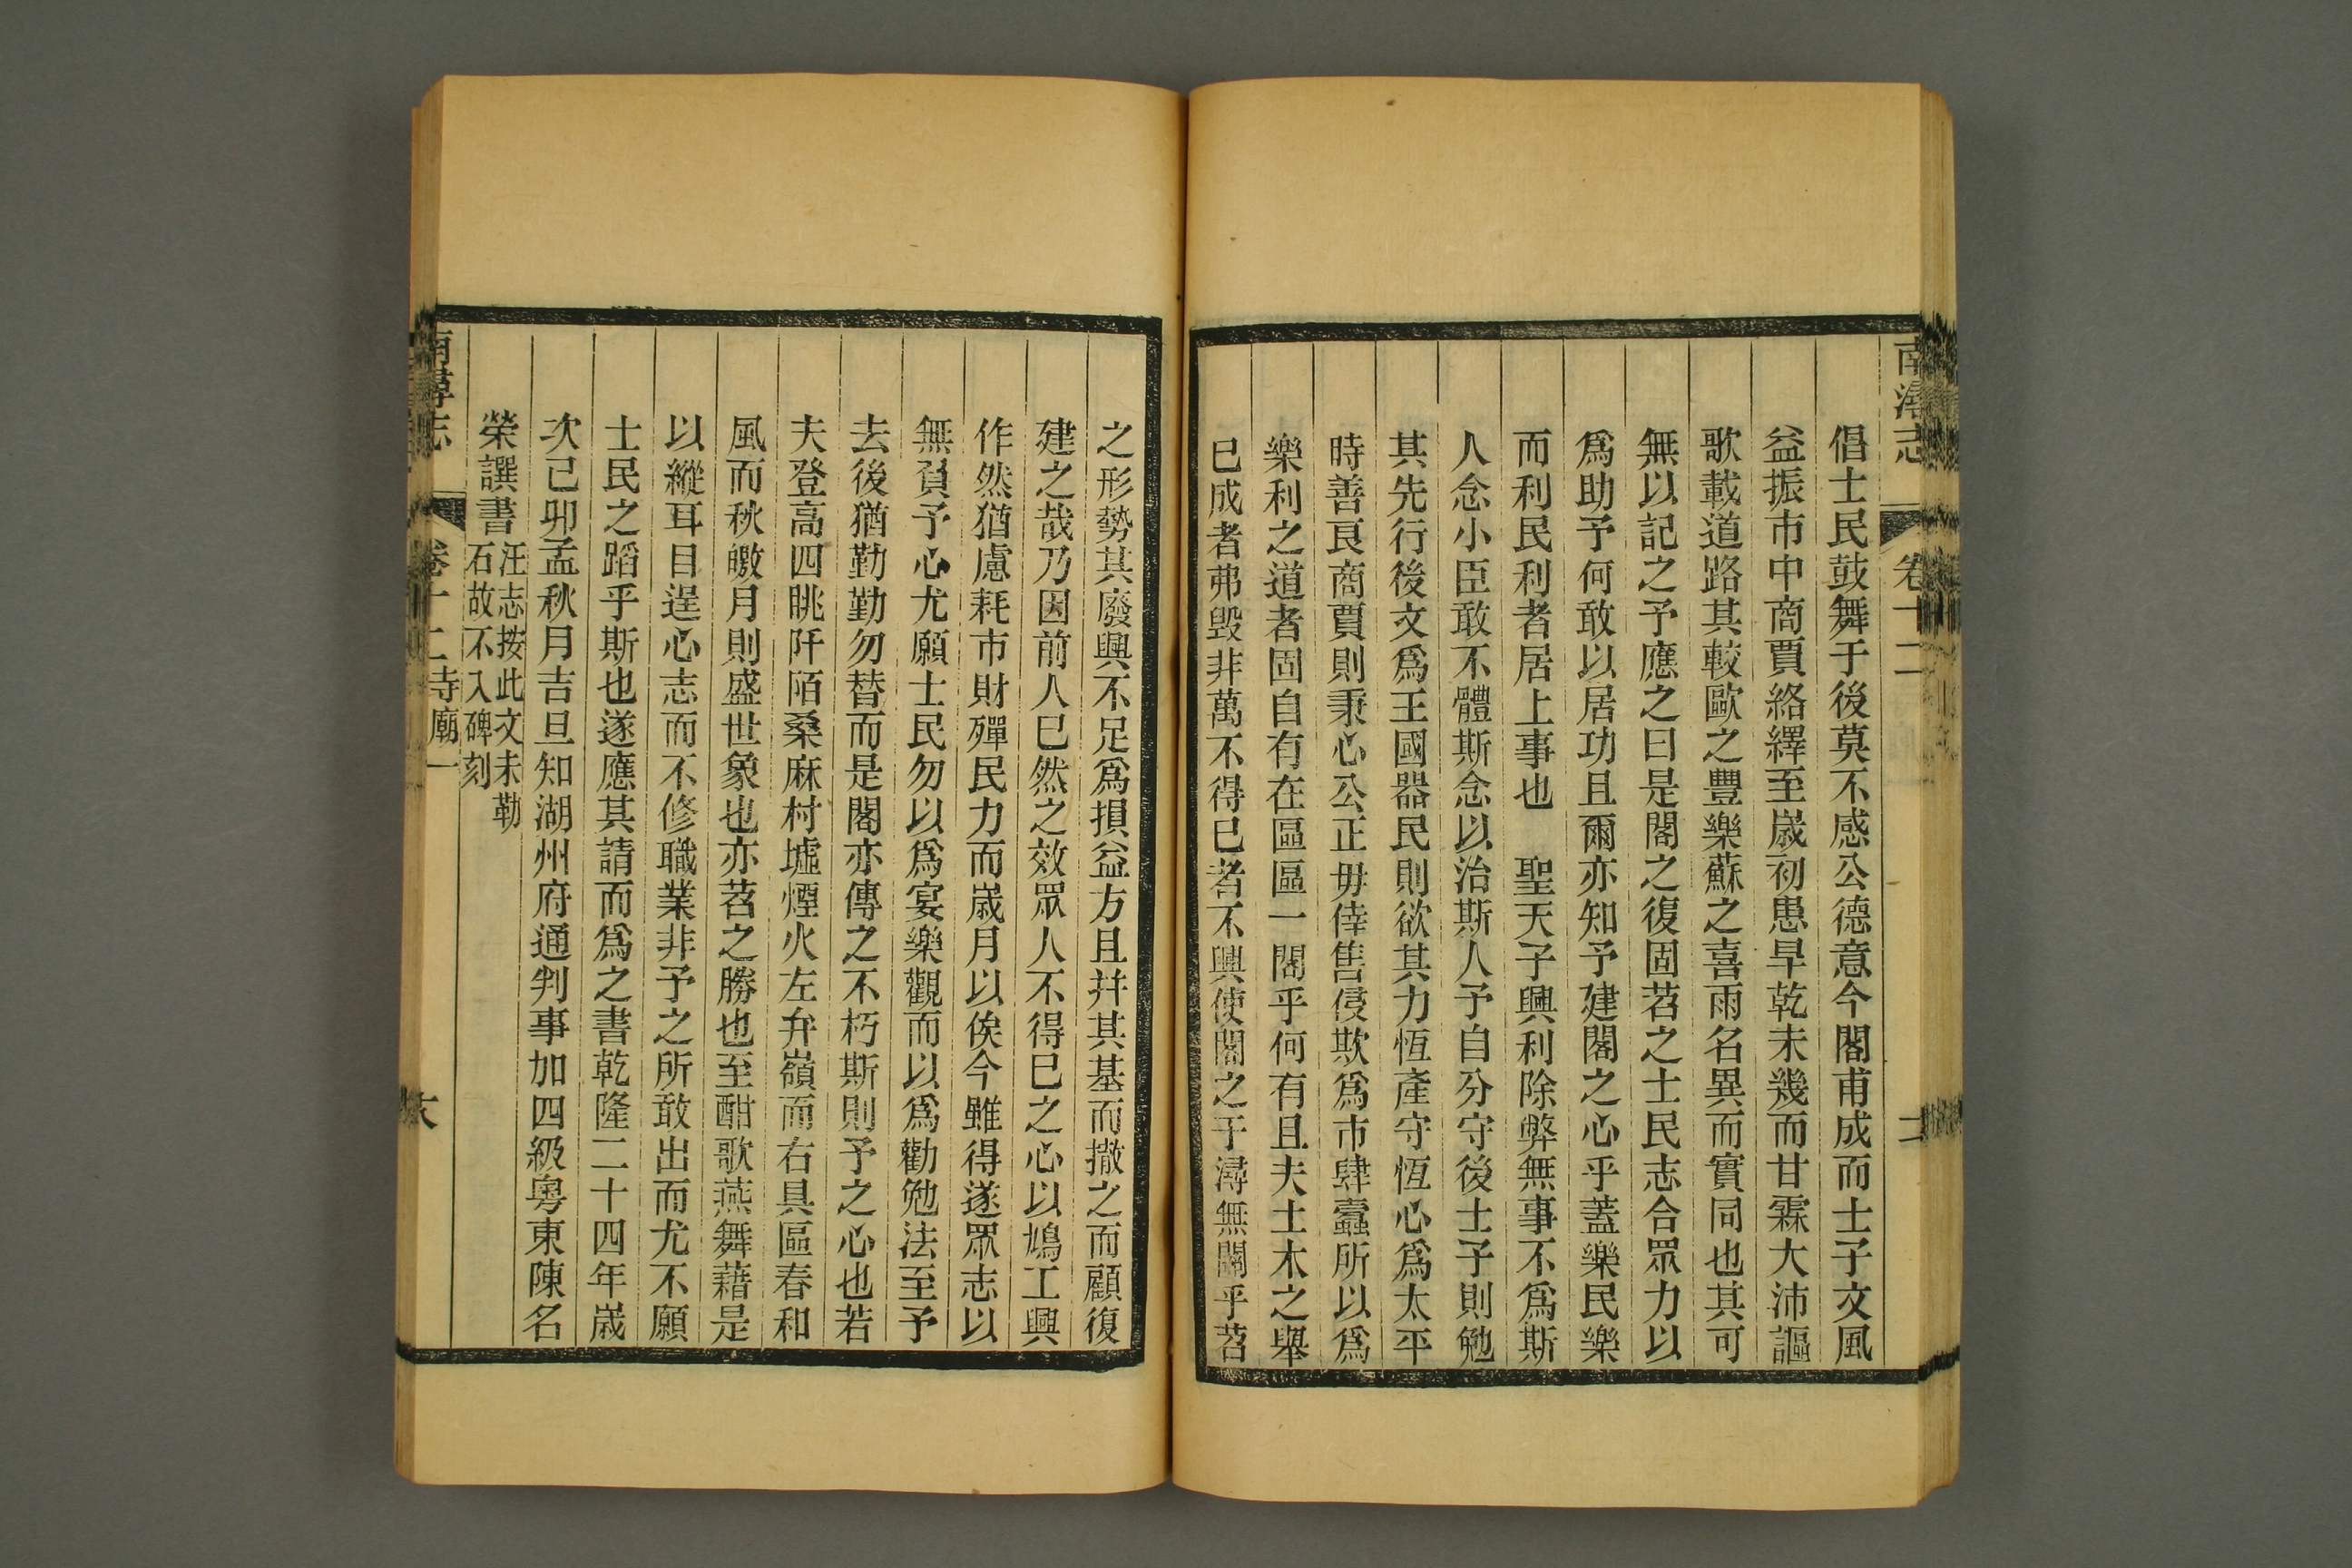 南潯志 卷十二
倡士民鼓舞于後莫不感公德意今閣甫成而士子文風
益振市中商賈絡繹至歲初患旱乾未幾而甘霖大沛謳
歌載道路其較歐之豐樂蘇之喜雨名異而實同也其可
無以記之予應之曰是閣之復固苕之士民志合眾力以
爲助予何敢以居功且爾亦知予建閣之心乎蓋樂民樂
而利民利者居上事也 聖天子興利除弊無事不爲斯
人念小臣敢不體斯念以治斯人予自分守後士子則勉
其先行後文爲王國器民則欲其力恆產守恆心爲太平
時善良商賈則秉心公正毋倖售侵欺爲市肆蠹所以爲
樂利之道者固自有在區區一閣乎何有且夫土木之舉
已成者弗毀非萬不得已者不興使閣之于潯無關乎苕
之形勢其廢興不足爲損益方且幷其基而撤之而顧復
建之哉乃因前人已然之效眾人不得已之心以鳩工興
作然猶慮耗市財殫民力而歲月以俟今雖得遂眾志以
無負予心尤願士民勿以爲宴樂觀而以爲勸勉法至予
去後猶勤勤勿替而是閣亦傳之不朽斯則予之心也若
夫登高四眺阡陌桑麻村墟煙火左弁嶺而右具區春和
風而秋皦月則盛世象也亦苕之勝也至酣歌燕舞藉是
以縱耳目逞心志而不修職業非予之所敢出而尤不願
士民之蹈乎斯也遂應其請而爲之書乾隆二十四年歲
次己卯孟秋月吉旦知湖州府通判事加四級粵東陳名
榮譔書
汪志按此文未勒
石故不入碑刻
南潯志 卷十二 寺廟一